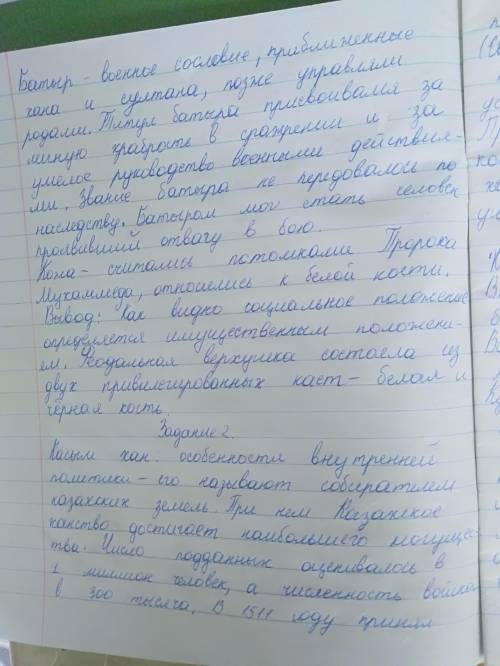 Батыр - военное сословие, приближенные
хана и султана, позже управляли
родами. Титул батыра присвоивался за
личную храбрость в сражении и за
умелое руководство военными действия-
ми. Звание батыра не передовалось по
наследству. Батыром мог стать человек
проявивший отвагу в бою.
Кожа - считались потомками Пророка
Мухаммеда, относились к белой кости.
Вывод: Как видно социальное положение
определяется имущественным положени-
ем. Феодальная верхушка состоела из
двух привилегированных каст - белая и
чёрная кость.
Задание 2.
Касым хан. особенности внутренней
политики - его называют собирателем
казахских земель. При нем Казахское
ханство достигает наибольшего могущес-
тва. Число подданных оценивалось в
1 миллион человек, а численность войска
в 300 тысяча. В 1511 году принял